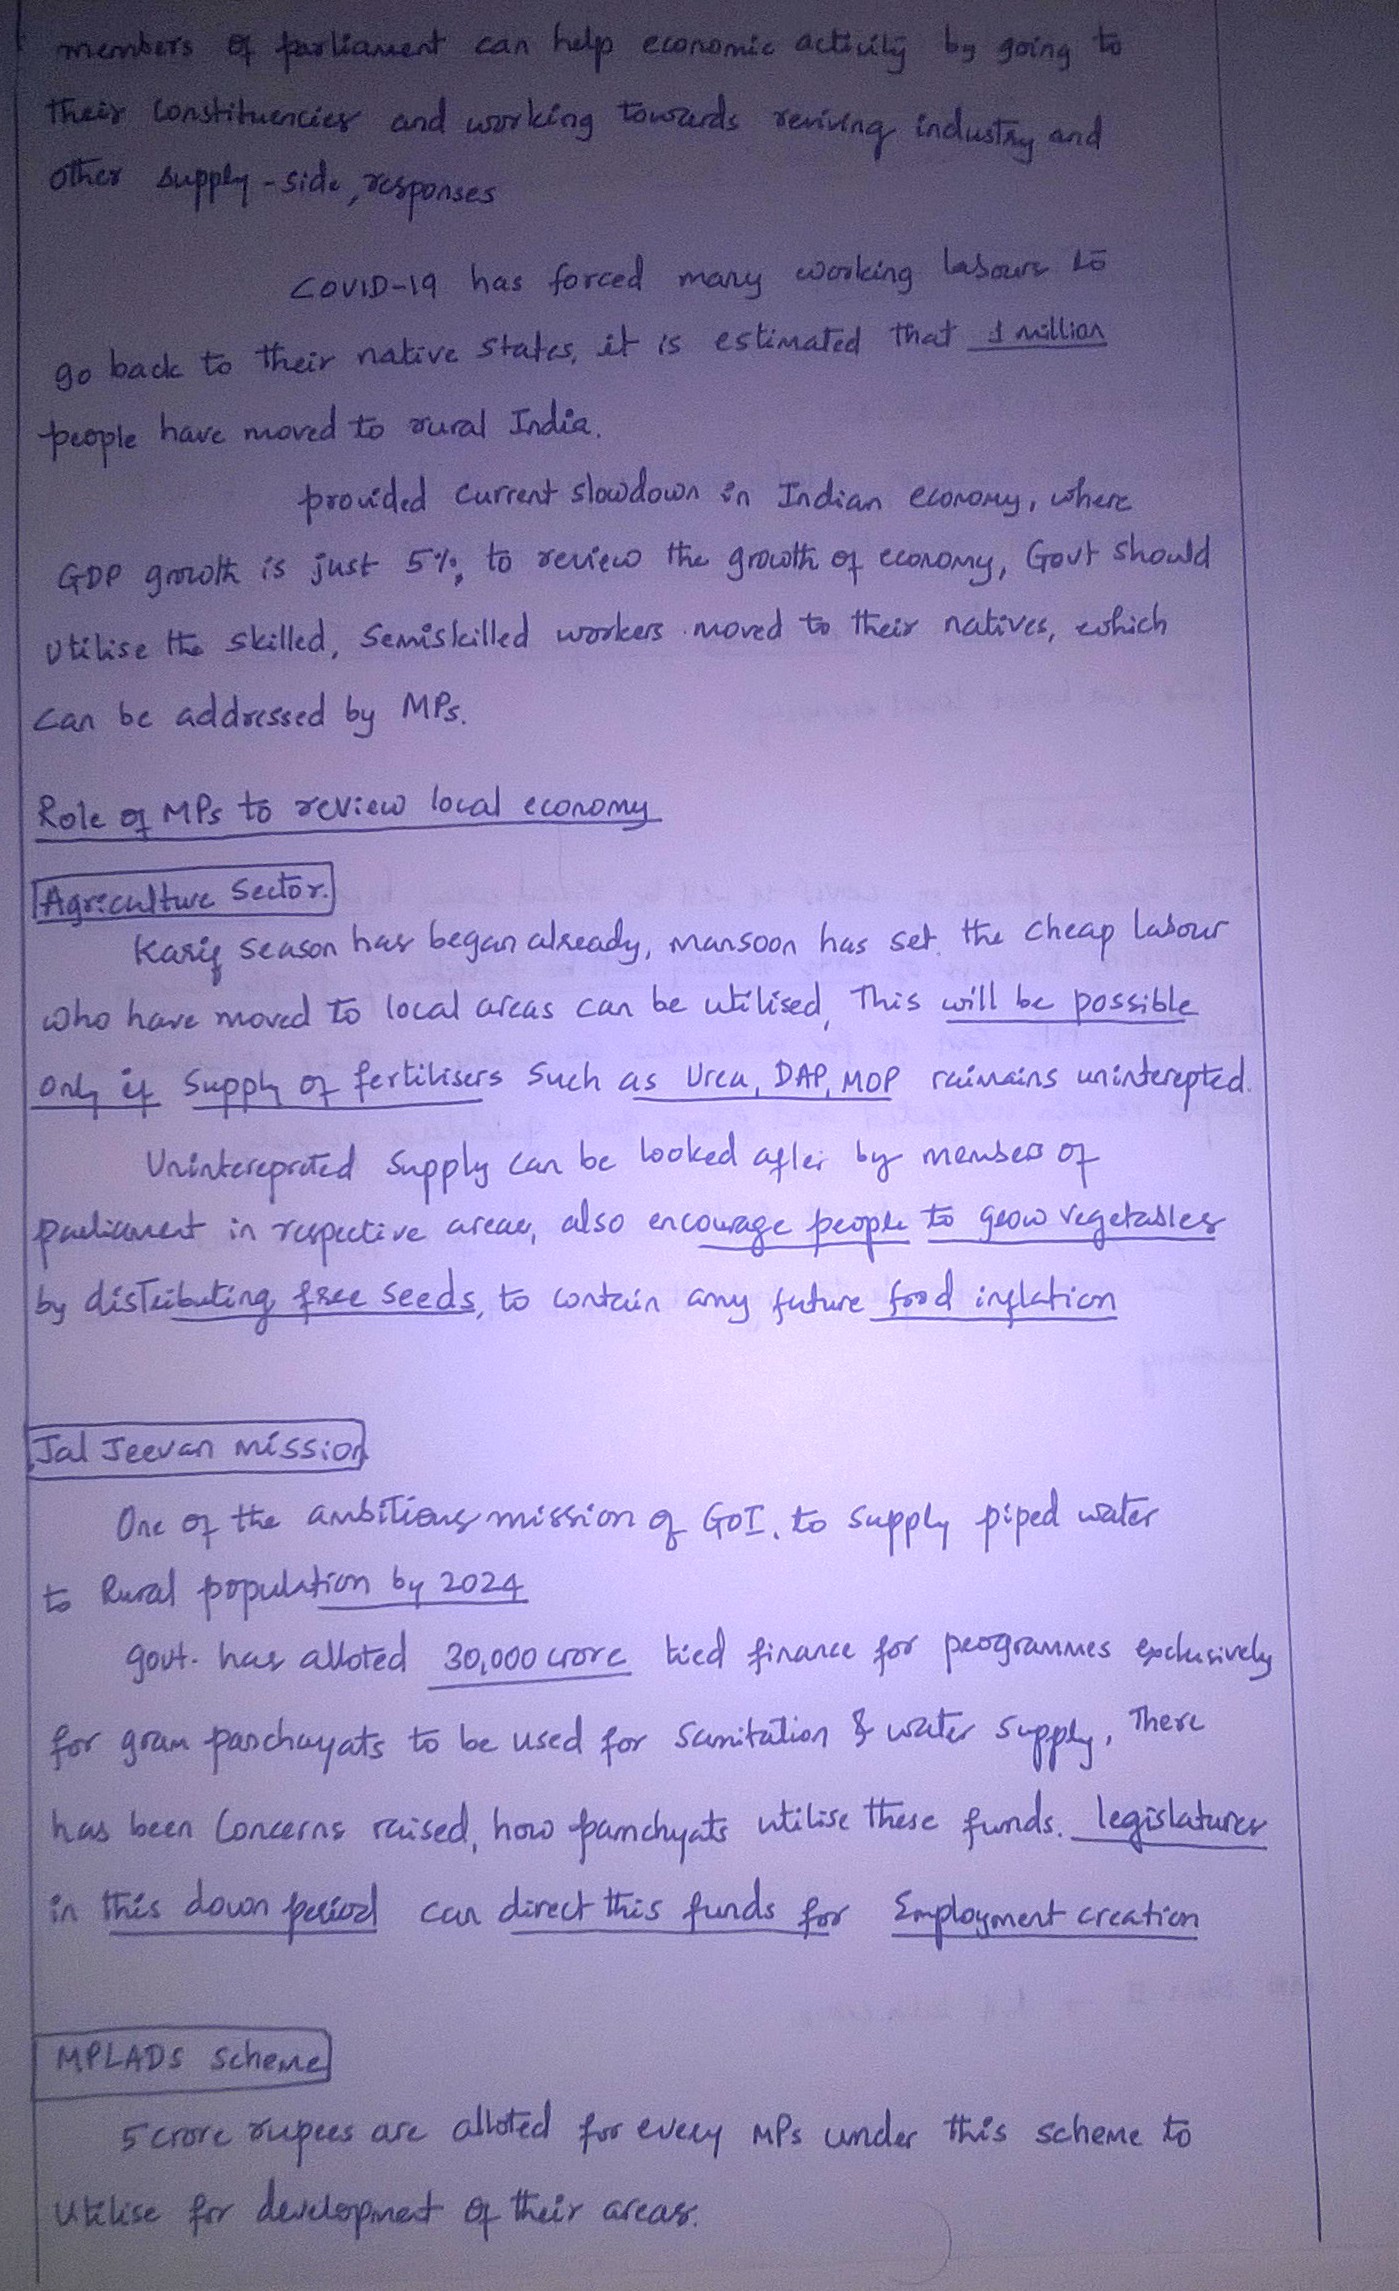 members of parliament can help economic activity by going to
their constituencies and working towards reviving industry and
other supply-side, responses
COVID-19 has forced many working labours to
go back to their native states, it is estimated that 1 million
people have moved to rural India.
provided current slowdown in Indian economy, where
GDP growth is just 5%, to review the growth of economy, Govt should
utilise the skilled, semiskilled workers moved to their natives, which
can be addressed by MPs.
Role of MPs to review local economy
Agriculture Sector.
Karif season has began already, mansoon has set. the cheap labour
who have moved to local areas can be utilised, This will be possible
only if supply of fertilisers such as Urea, DAP, MOP raimains uninterepted.
Uninterepreted supply can be looked after by members of
parliament in respective areas, also encourage people to grow vegetables
by distributing free seeds, to contain any future food inflation
Jal Jeevan mission
One of the ambitious mission of GOI, to supply piped water
to Rural population by 2024
govt. has alloted 30,000 crore tied finance for programmes exclusively
for gram panchayats to be used for sanitation & water supply, There
has been concerns raised, how panchyats utilise these funds. legislatures
in this down period can direct this funds for Employment creation
MPLADS scheme
5 crore rupees are alloted for every MPs under this scheme to
utilise for development of their areas.